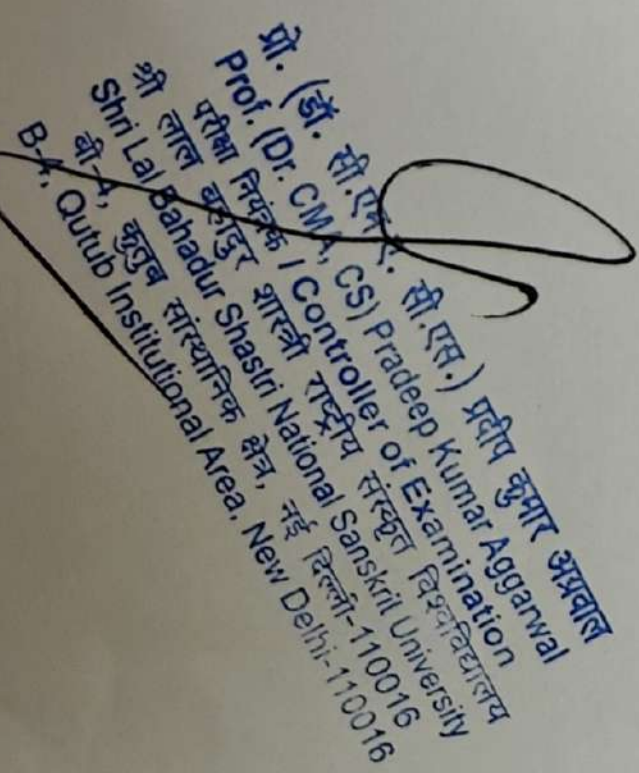 प्रो. (डॉ. सी.एम.ए. सी.एस.) प्रदीप कुमार अग्रवाल
Prof. (Dr. CMA, CS) Pradeep Kumar Aggarwal
परीक्षा नियंत्रक / Controller of Examination
श्री लाल बहादुर शास्त्री राष्ट्रीय संस्कृत विश्वविद्यालय
Shri Lal Bahadur Shastri National Sanskrit University
बी-4, कुतुब सांस्थानिक क्षेत्र, नई दिल्ली-110016
B-4, Qutub Institutional Area, New Delhi-110016